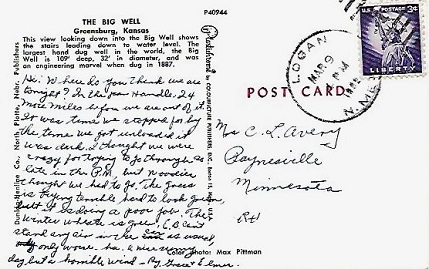 P40944
THE BIG WELL
Greensburg, Kansas
This view looking down into the Big Well shows
the stairs leading down to water level. The
largest hand dug well in the world, the Big
Well is 109' deep, 32' in diameter, and was
an engineering marvel when dug in 1887.
Hi. Where do you think we are
tonight? In the pan Handle, 24
more miles before we are out of it.
It was time we stopped for by
the time we got unloaded it
was dark. I thought we were
crazy for trying to go through so
late in the P.M. but
thought we had to go. The grass
is trying terrible hard to look green,
but is doing a poor job. The
winter wheat is green.
stand any air in the car as usual,
only worse. Had a nice sunny
day but a horrible wind - By Grace & Elmer.
Color Photo: Max Pittman
Dunlap-Henline Co., North Platte, Nebr. Publishers
POST CARD
LOGAN
MAR 9
PM
N. MEX
U.S. POSTAGE
3¢
LIBERTY
Mrs C. L. Avery
Paynesville
Minnesota